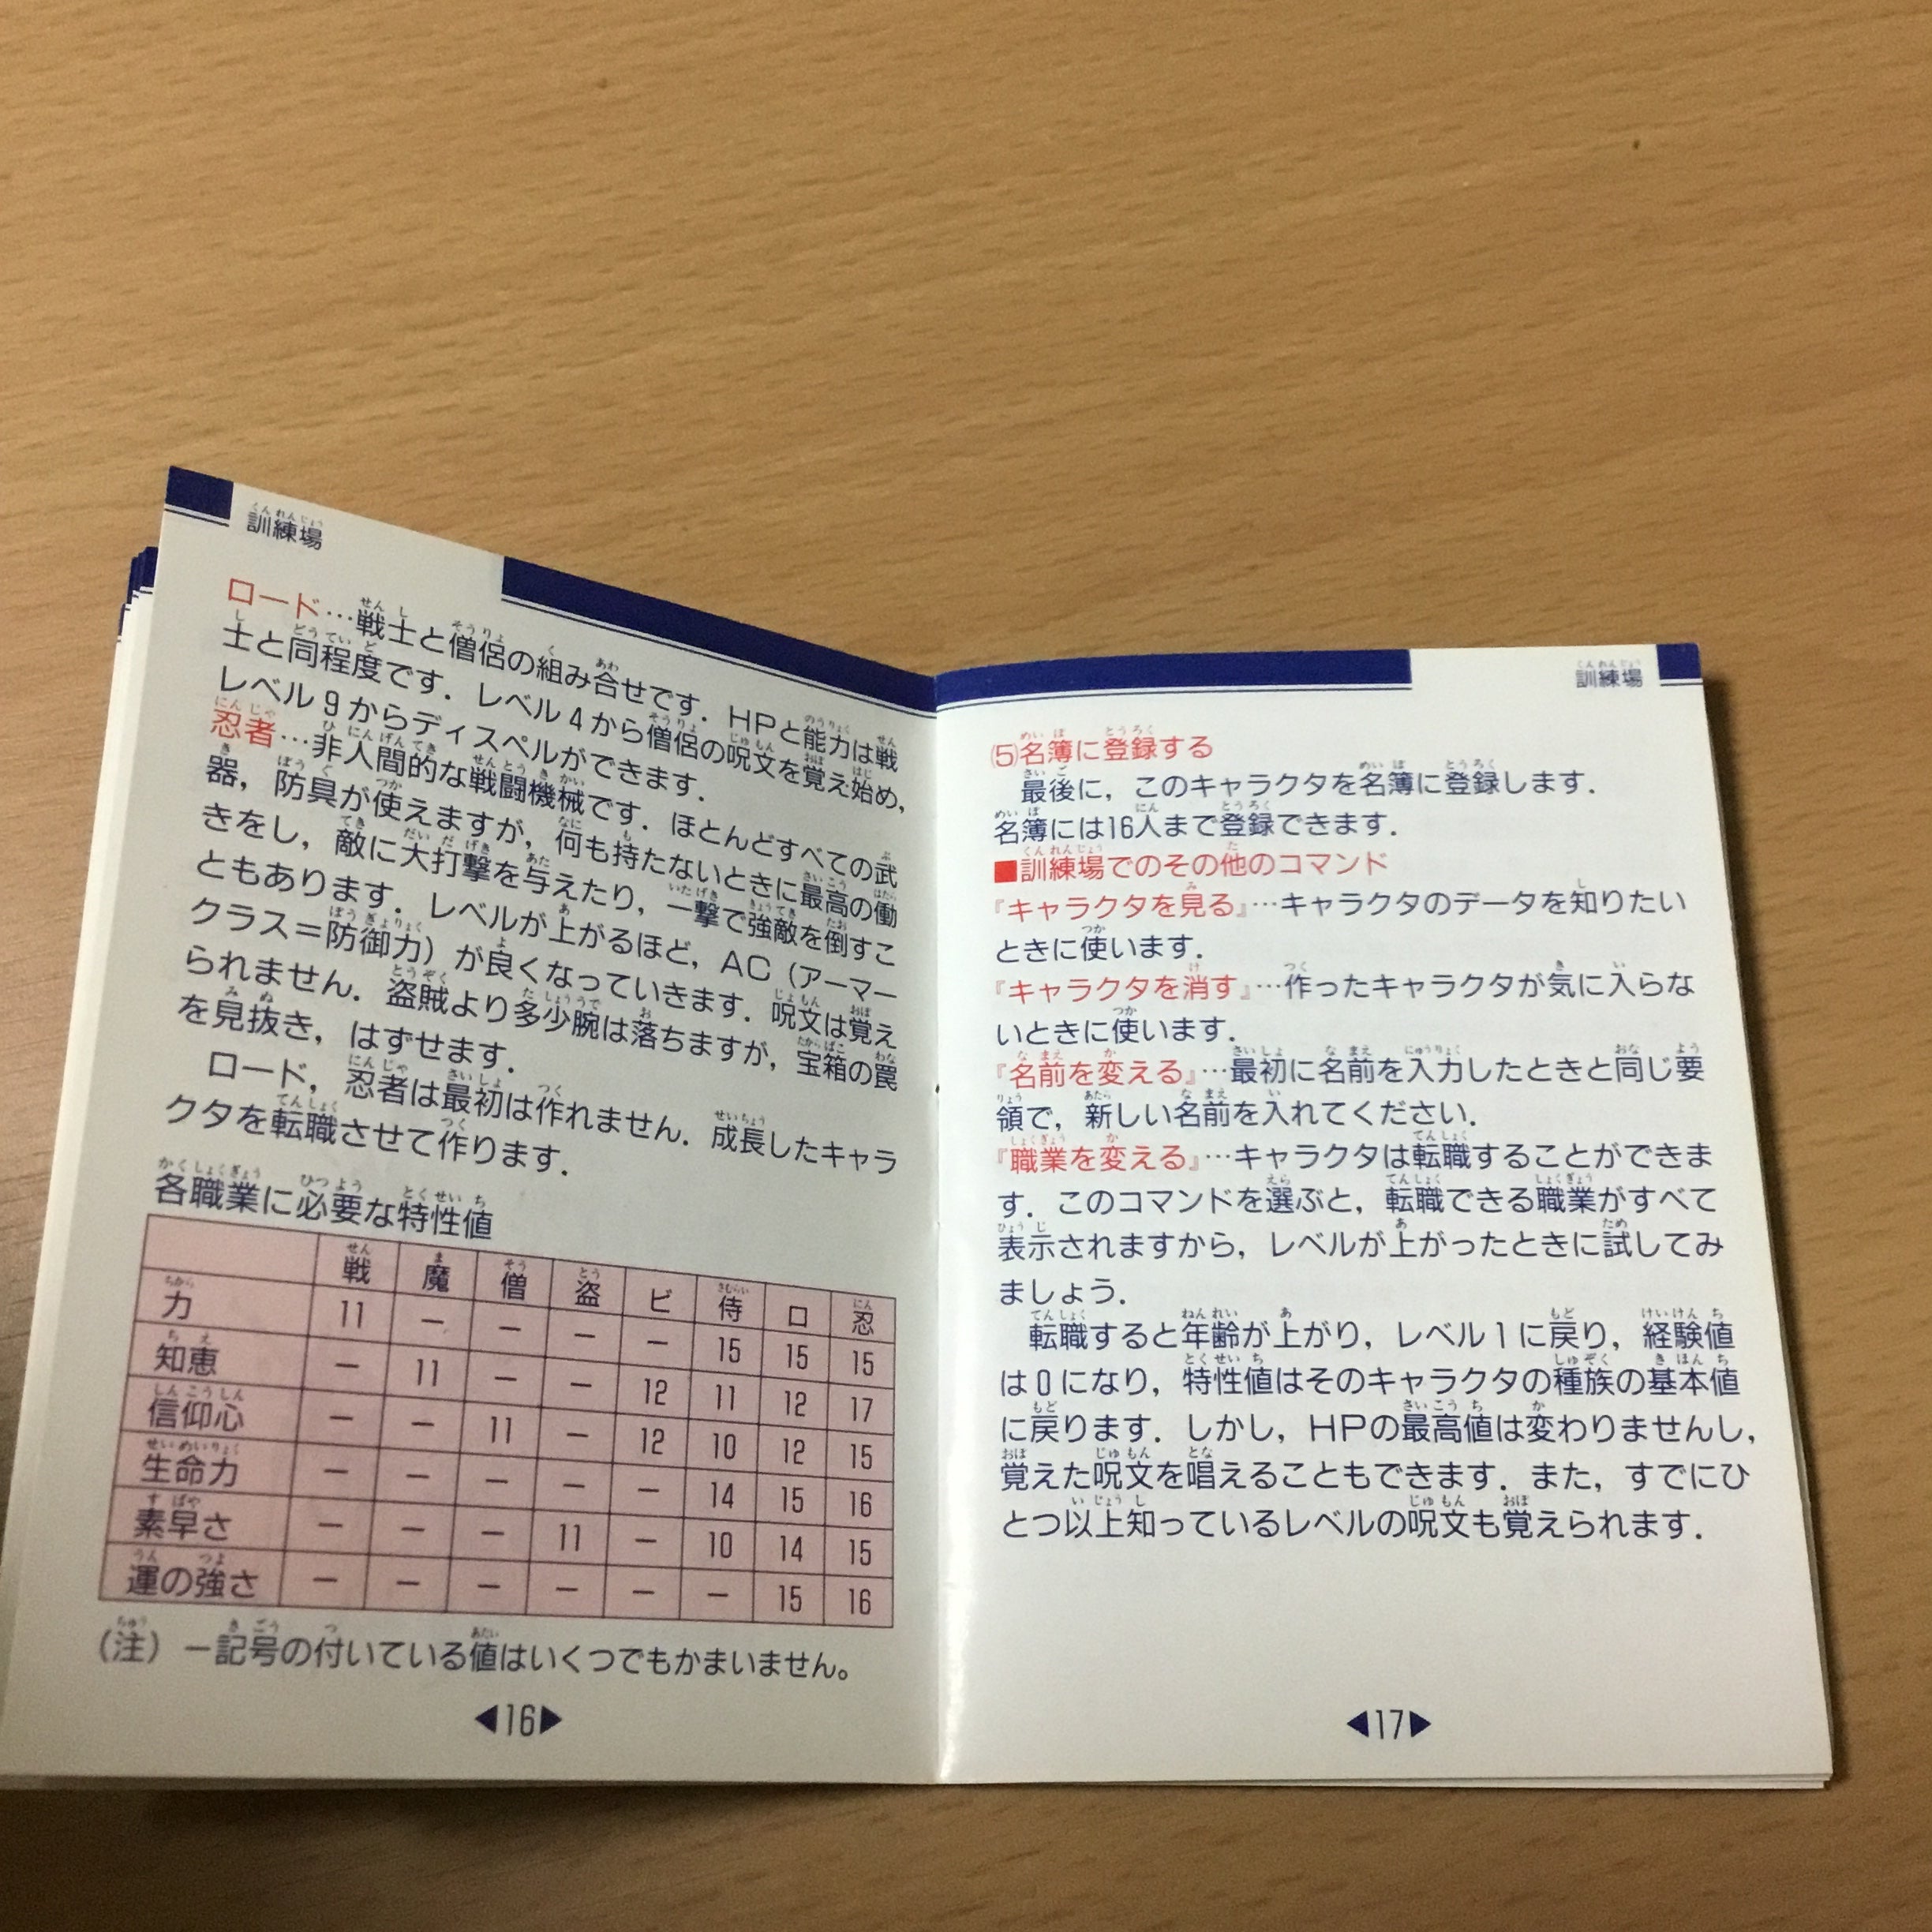 訓練場
ロード…戦士と僧侶の組み合せです．HPと能力は戦
士と同程度です．レベル4から僧侶の呪文を覚え始め，
レベル9からディスペルができます．
忍者…非人間的な戦闘機械です．ほとんどすべての武
器，防具が使えますが，何も持たないときに最高の働
きをし，敵に大打撃を与えたり，一撃で強敵を倒すこ
ともあります．レベルが上がるほど，AC（アーマー
クラス＝防御力）が良くなっていきます．呪文は覚え
られません．盗賊より多少腕は落ちますが，宝箱の罠
を見抜き，はずせます．
ロード，忍者は最初は作れません．成長したキャラ
クタを転職させて作ります．
各職業に必要な特性値
戦 魔 僧 盗 ビ 侍 ロ 忍
力 11 － － － － 15 15 15
知恵 － 11 － － 12 11 12 17
信仰心 － － 11 － 12 10 12 15
生命力 － － － － － 14 15 16
素早さ － － － 11 － 10 14 15
運の強さ － － － － － － 15 16
（注）－記号の付いている値はいくつでもかまいません。
◀16▶
訓練場
⑸名簿に登録する
最後に，このキャラクタを名簿に登録します．
名簿には16人まで登録できます．
■訓練場でのその他のコマンド
『キャラクタを見る』…キャラクタのデータを知りたい
ときに使います．
『キャラクタを消す』…作ったキャラクタが気に入らな
いときに使います．
『名前を変える』…最初に名前を入力したときと同じ要
領で，新しい名前を入れてください．
『職業を変える』…キャラクタは転職することができま
す．このコマンドを選ぶと，転職できる職業がすべて
表示されますから，レベルが上がったときに試してみ
ましょう．
転職すると年齢が上がり，レベル1に戻り，経験値
は0になり，特性値はそのキャラクタの種族の基本値
に戻ります．しかし，HPの最高値は変わりませんし，
覚えた呪文を唱えることもできます．また，すでにひ
とつ以上知っているレベルの呪文も覚えられます．
◀17▶